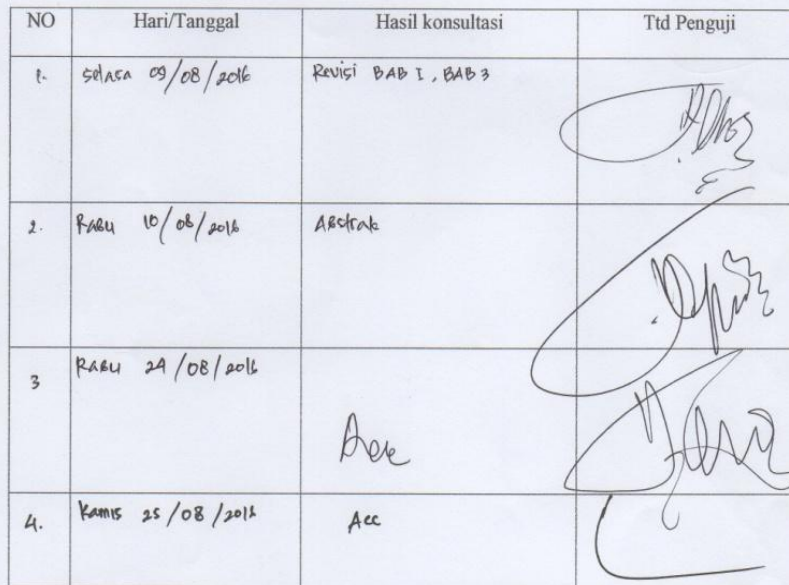 NO Hari/Tanggal Hasil konsultasi Ttd Penguji
1. Selasa 09/08/2016 Revisi BAB I, BAB 3
2. RABU 10/08/2016 Abstrak
3 RABU 24/08/2016
Acc
4. Kamis 25/08/2016 Acc